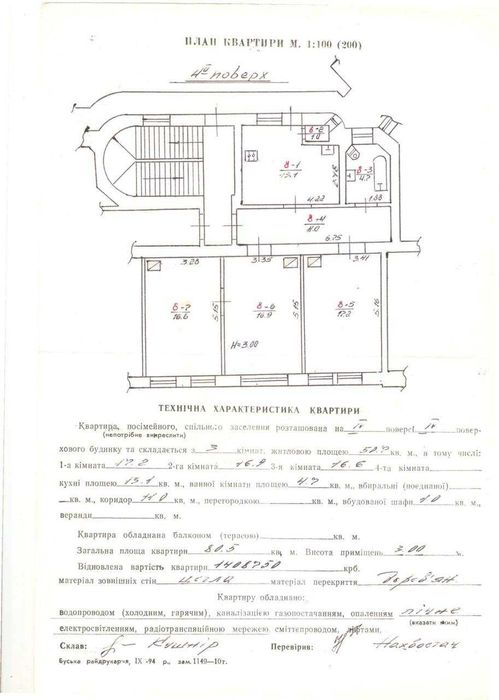 ПЛАН КВАРТИРИ М. 1:100 (200)
4й поверх
8-2
1.0
8-1
13.1
8-3
4.7
4.22
1.88
8-4
11.0
6.75
3.28
3.35
3.41
8-7
16.6
5.15
8-6
16.9
5.15
8-5
17.2
5.16
H=3.00
ТЕХНІЧНА ХАРАКТЕРИСТИКА КВАРТИРИ
Квартира, посімейного, спільного заселення розташована на IV поверсі IV повер-
(непотрібне викреслити)
хового будинку та складається з 3 кімнат, житловою площею 50.7 кв. м., в тому числі:
1-а кімната 17.2 2-га кімната 16.9 3-я кімната 16.6 4-та кімната
кухні площею 13.1 кв. м., ванної кімнати площею 4.7 кв. м., вбиральні (поєднаної)
кв. м., коридор 11.0 кв. м., перегородкою кв. м., вбудованої шафи 1.0 кв. м.,
веранди кв. м.
Квартира обладнана балконом (терасою) кв. м.
Загальна площа квартири 80.5 кв. м. Висота приміщень 3.00 м.
Відновлена вартість квартири 1408750 крб.
матеріал зовнішніх стін цегла матеріал перекриття дерев'ян.
Квартиру обладнано:
водопроводом (холодним, гарячим), каналізацією газопостачанням, опаленням пічне
(вказати яким)
електросвітленням, радіотрансляційною мережею, сміттєпроводом, ліфтами.
Склав: Кушнір Перевірив: Нахвостач
Буська райдрукарня, IX -94 р., зам. 1149—10т.